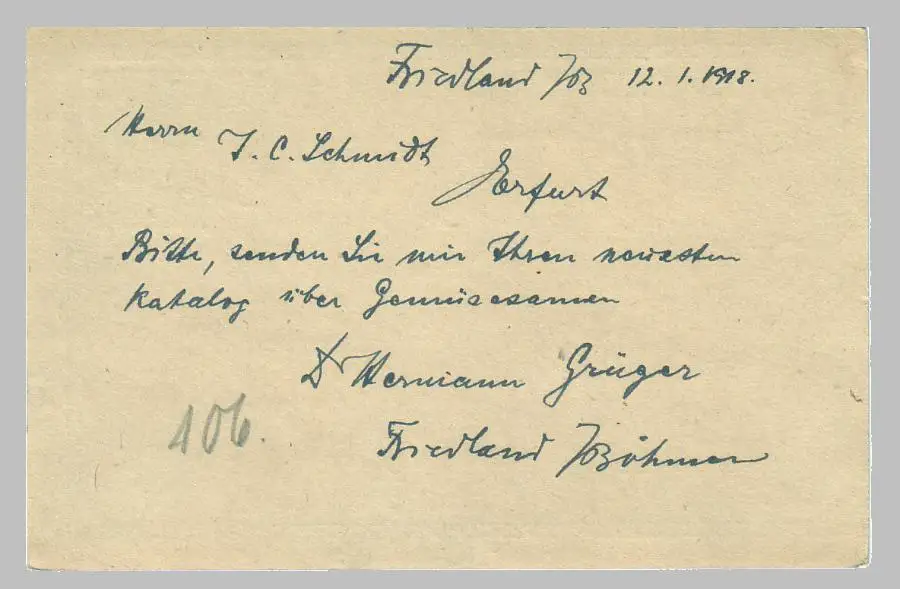 Friedland /Bö 12. 1. 1918.
Herrn
J. C. Schmidt
Erfurt
Bitte, senden Sie mir Ihren neuesten
Katalog über Gemüsesamen
Dr Hermann Grüger
Friedland /Böhmen
406.